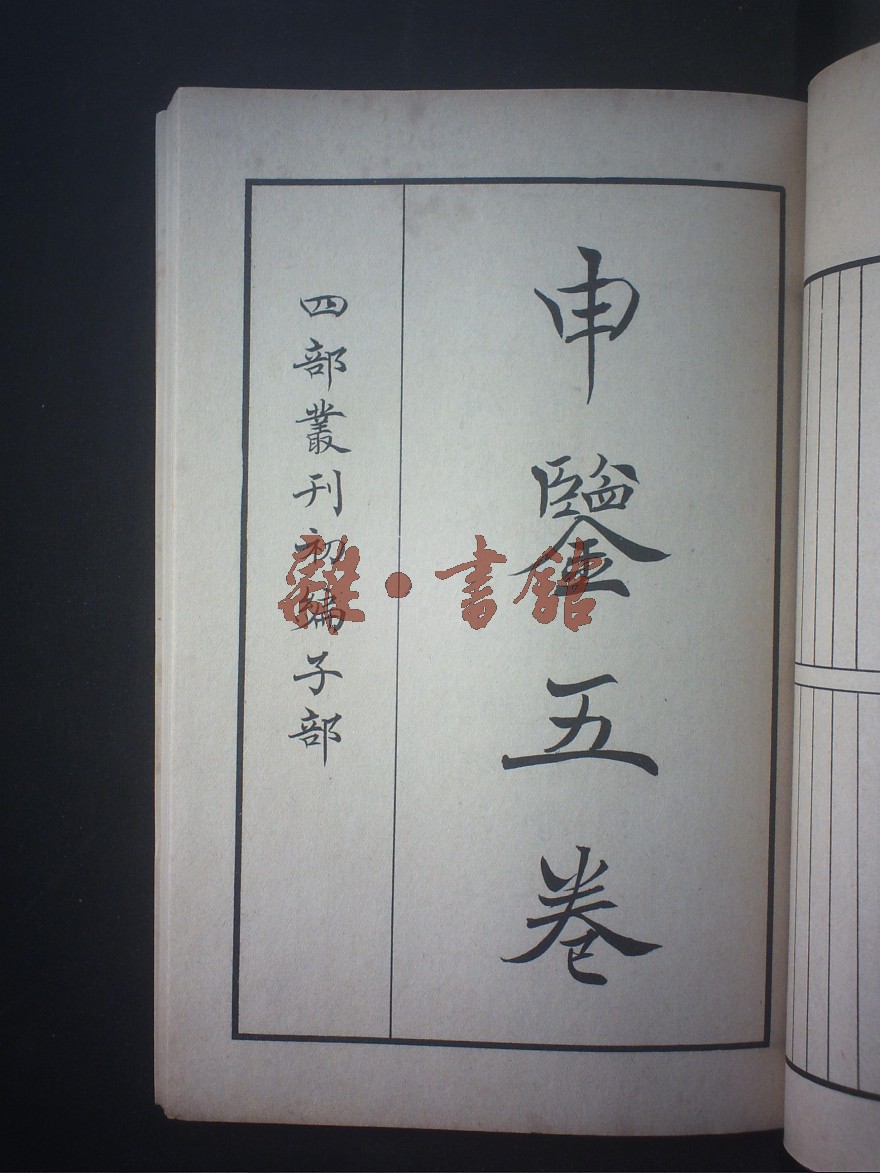 申鑒五卷
四部叢刊初編子部
書館